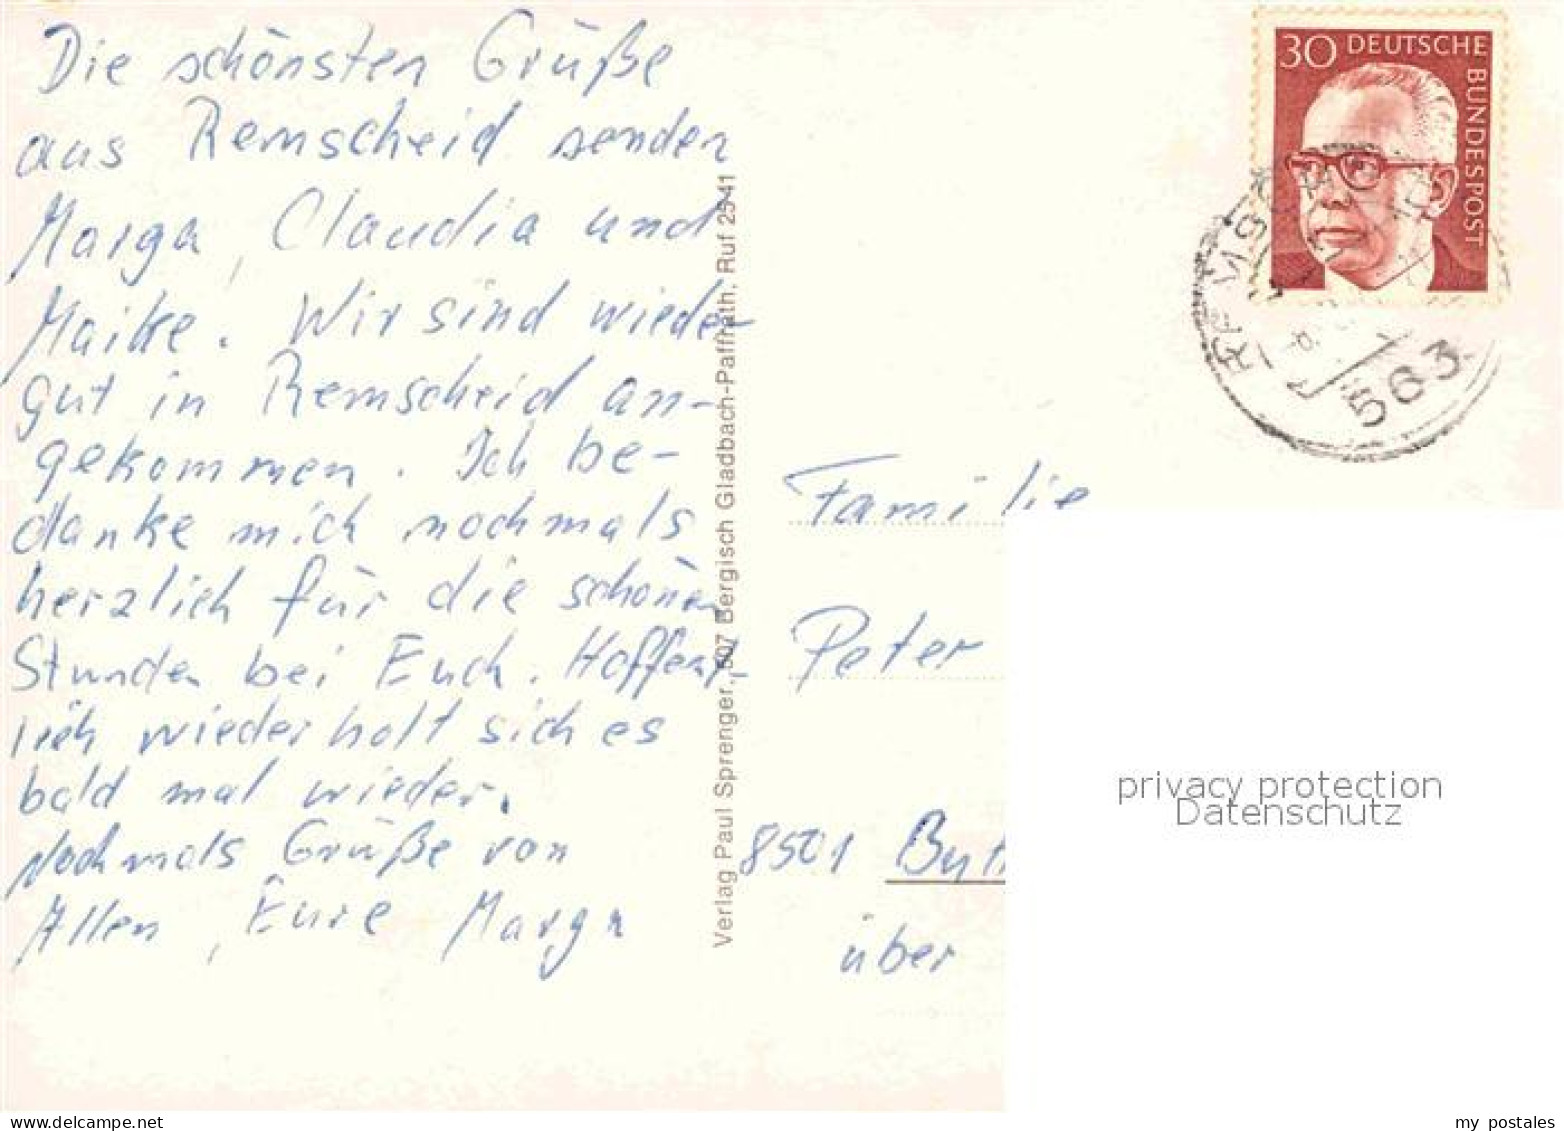 Die schönsten Grüße
aus Remscheid senden
Marga, Claudia und
Maike. Wir sind wieder
gut in Remscheid an-
gekommen. Ich be-
danke mich nochmals
herzlich für die schönen
Stunden bei Euch. Hoffent-
lich wiederholt sich es
bald mal wieder.
Nochmals Grüße von
Allen, Eure Marga
Verlag Paul Sprenger, 507 Bergisch Gladbach-Paffrath, Ruf 2541
30 DEUTSCHE BUNDESPOST
563
Familie
Peter
8501
über
privacy protection
Datenschutz
delcampe.net
my_postales